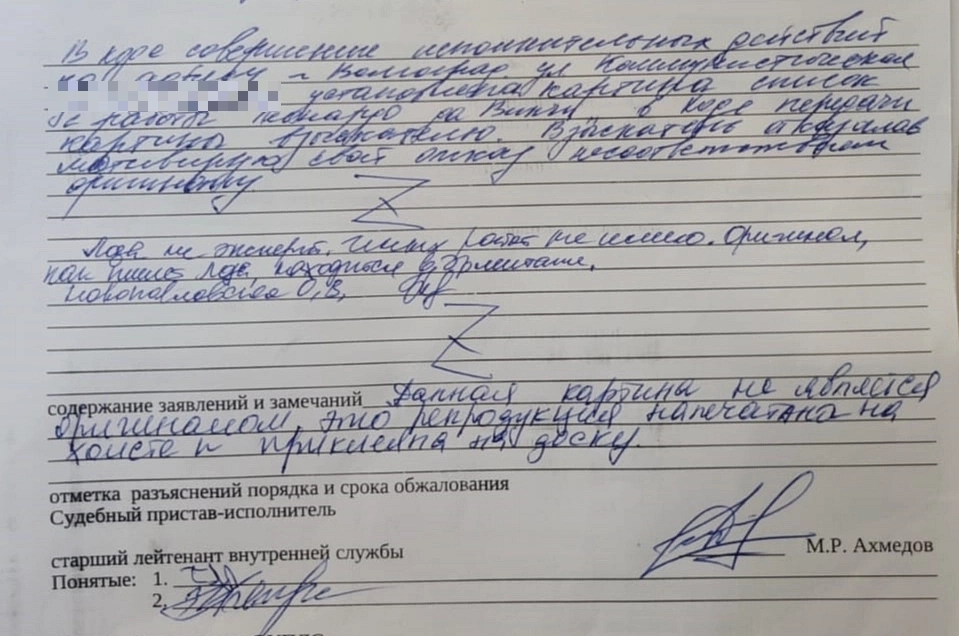 В ходе совершение исполнительных действий
по адресу г Волгоград ул Коммунистическая
установлена картина список
с работы Леонардо да Винчи в ходе передачи
картины взыскателю. Взыскатель отказалась
мотивируя свой отказ несоответствием
оригиналу
Лода не эксперт. Иных не имею. Оригинал,
как пишет Лода, находиться в Эрмитаже.
Новопавловская О.В.
содержание заявлений и замечаний Данная картина не является
оригиналом, это репродукция напечатана на
холсте и приклеена на доску.
отметка разъяснений порядка и срока обжалования
Судебный пристав-исполнитель
старший лейтенант внутренней службы
М.Р. Ахмедов
Понятые: 1.
2.